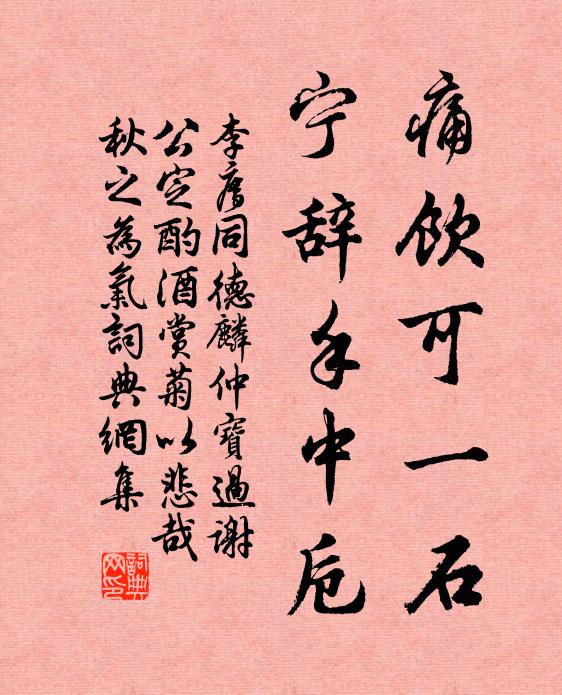 痛飲可一石
宁辞手中卮
李廌同德麟仲寶過謝
公定酌酒賞菊以悲哉
秋之為氣詞典網集
詞典网印